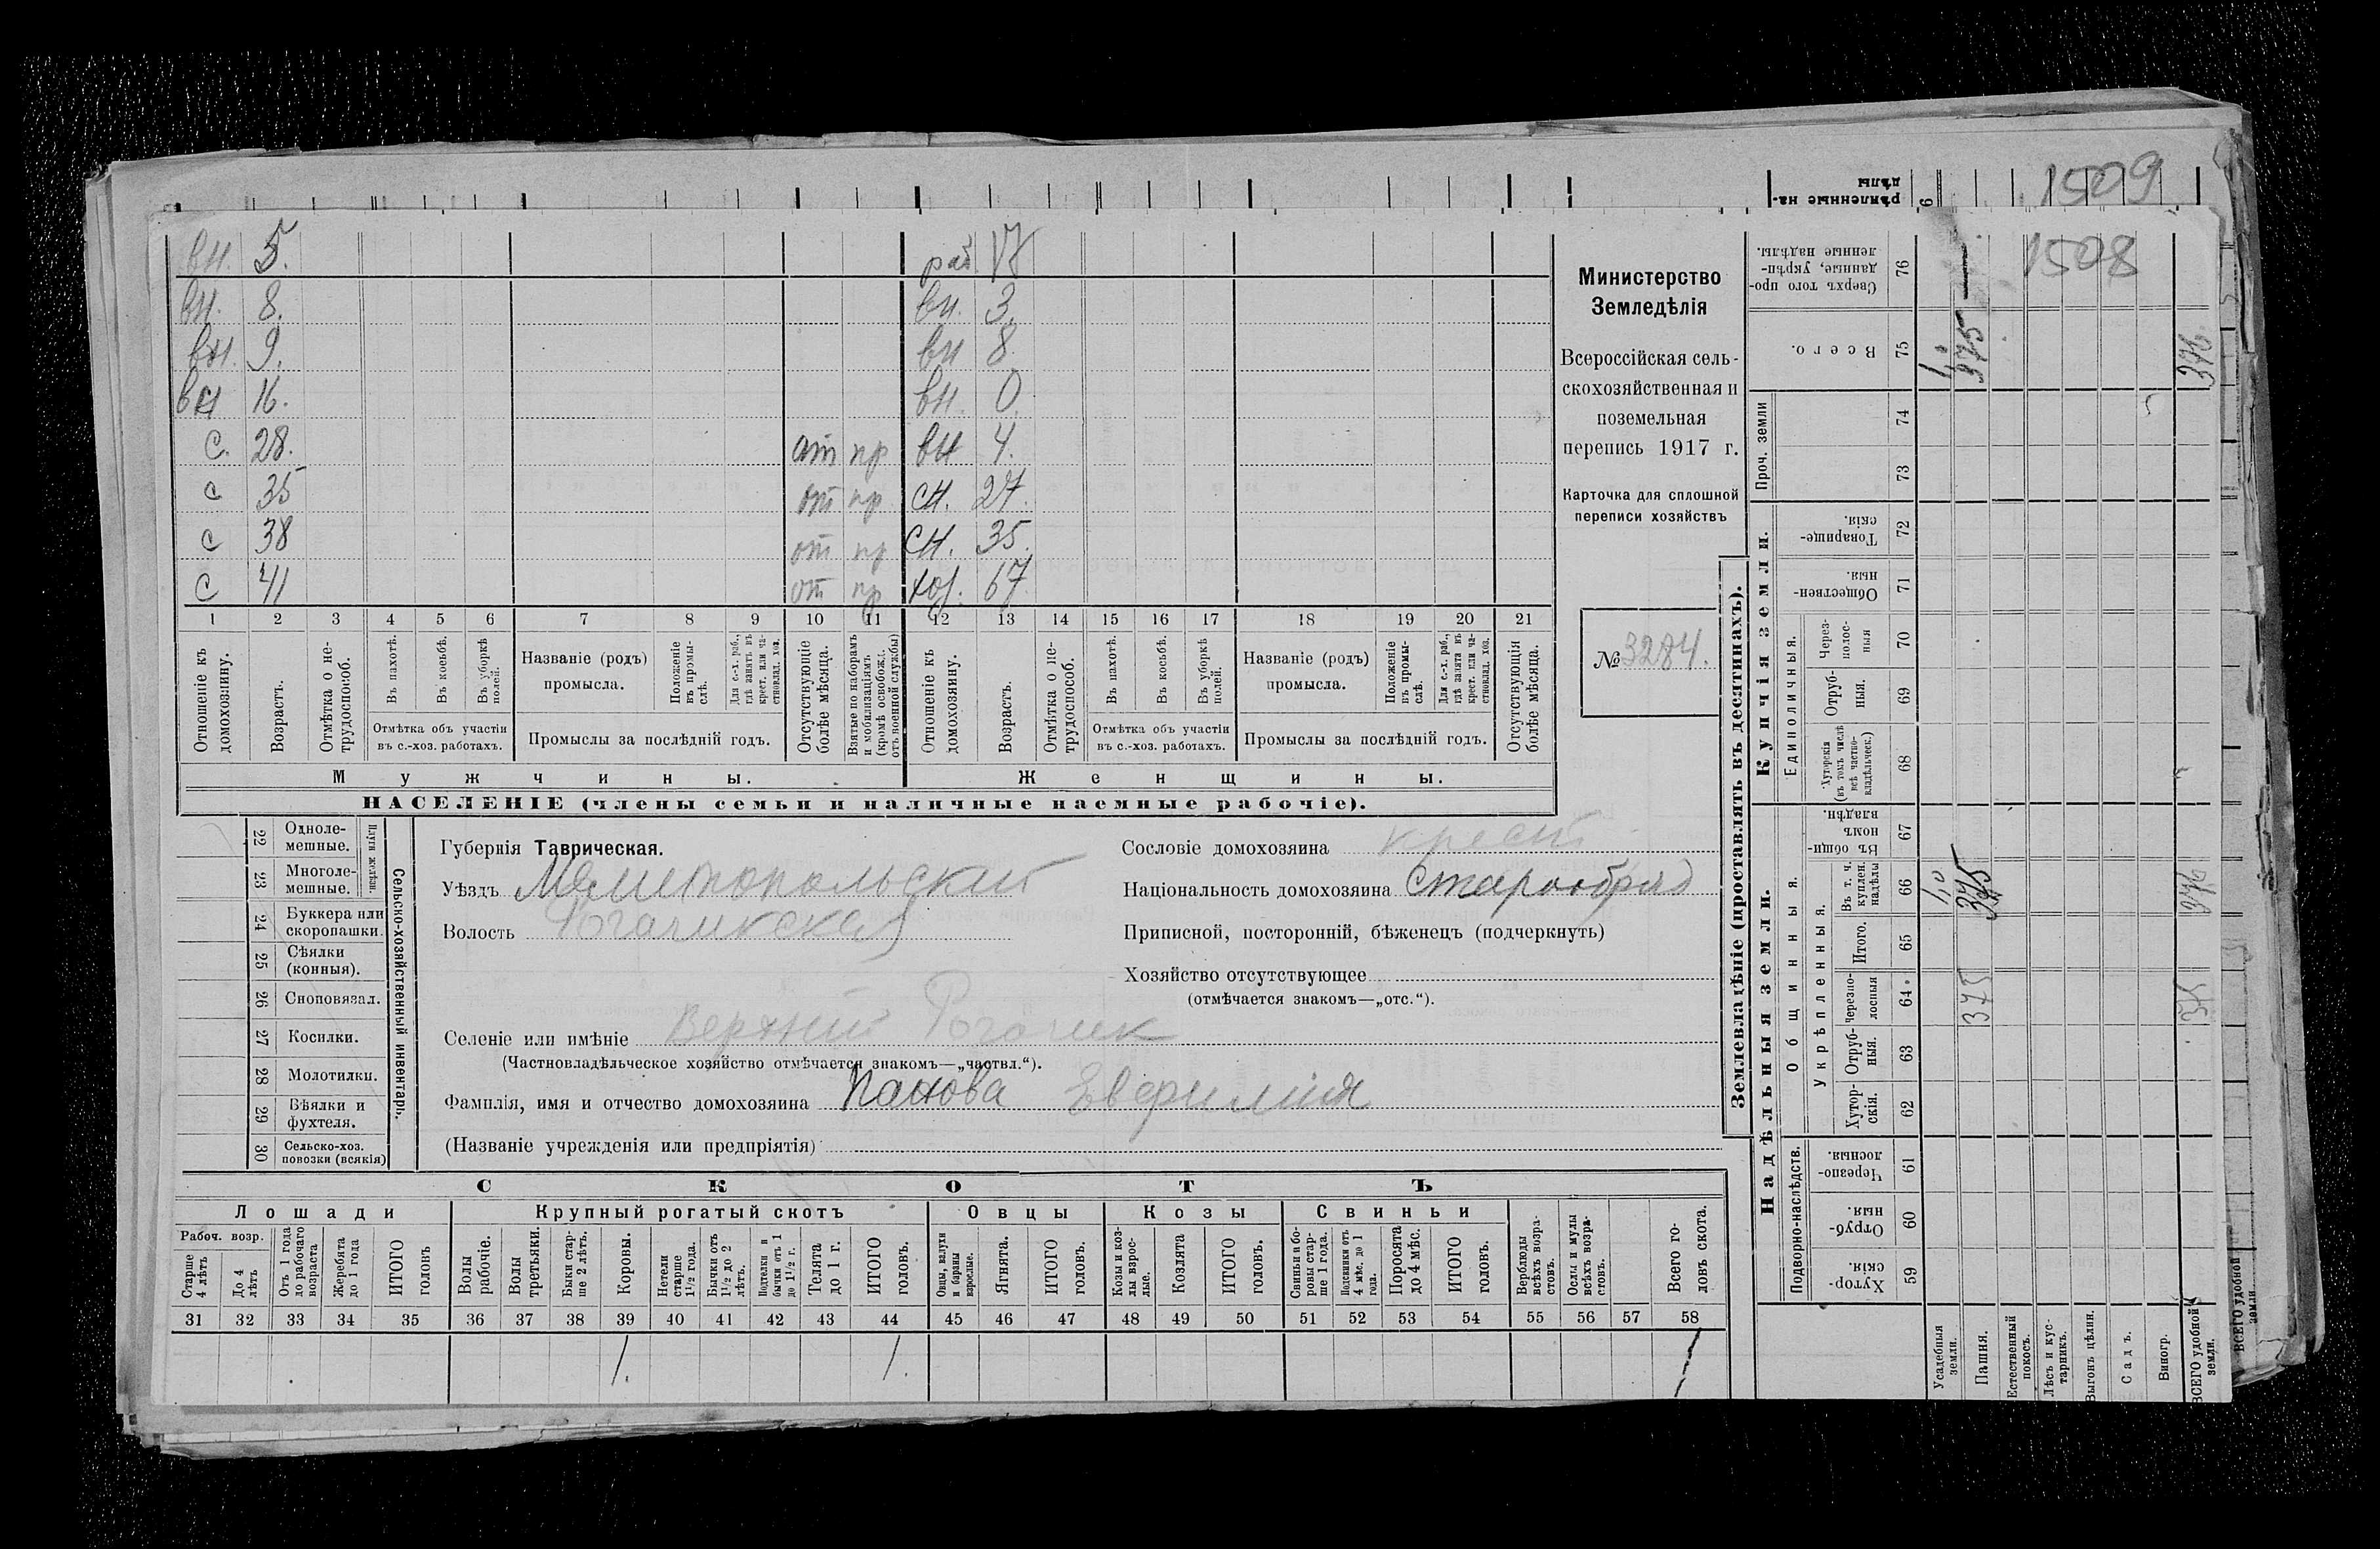 1509
1508
вн. 5. раб. 17
вн. 8. вн. 3.
вн. 9. вн 8.
вн 16. вн. 0.
с. 28. от пр вн 4.
с 35 от пр сн. 27.
с 38 от пр сн. 35.
с 41 от пр хоз. 67
1 2 3 4 5 6 7 8 9 10 11 12 13 14 15 16 17 18 19 20 21
Отношеніе къ домохозяину.
Возрастъ.
Отмѣтка о не-трудоспособ.
Въ пахотѣ.
Въ косьбѣ.
Въ уборкѣ полей.
Отмѣтка объ участіи
въ с.-хоз. работахъ.
Названіе (родъ)
промысла.
Положеніе въ промы-слѣ.
Для с.-х. раб., гдѣ занятъ въ крест. или ча-стновлад. хоз.
Промыслы за послѣдній годъ.
Отсутствующіе болѣе мѣсяца.
Взятые по наборамъ и мобилизаціямъ (кромѣ освобожд. отъ военной службы)
Отношеніе къ домохозяину.
Возрастъ.
Отмѣтка о не-трудоспособ.
Въ пахотѣ.
Въ косьбѣ.
Въ уборкѣ полей.
Отмѣтка объ участіи
въ с.-хоз. работахъ.
Названіе (родъ)
промысла.
Положеніе въ промы-слѣ.
Для с.-х. раб., гдѣ занята въ крест. или ча-стновлад. хоз.
Промыслы за послѣдній годъ.
Отсутствующія болѣе мѣсяца.
Мужчины. Женщины.
НАСЕЛЕНІЕ (члены семьи и наличные наемные рабочіе).
Министерство
Земледѣлія
Всероссійская сель-
скохозяйственная и
поземельная
перепись 1917 г.
Карточка для сплошной
переписи хозяйствъ
№ 3284.
Сельско-хозяйственный инвентарь.
Плуги желѣзн.
22 Одноле-мешные.
23 Многоле-мешные.
24 Буккера или скоропашки.
25 Сѣялки (конныя).
26 Сноповязал.
27 Косилки.
28 Молотилки.
29 Вѣялки и фухтеля.
30 Сельско-хоз. повозки (всякія)
Губернія Таврическая.
Уѣздъ Мелитопольский
Волость Рогачикская
Селеніе или имѣніе Верхний Рогачик
(Частновладѣльческое хозяйство отмѣчается знакомъ—„частвл.“).
Фамилія, имя и отчество домохозяина Панова Евфимия
(Названіе учрежденія или предпріятія)
Сословіе домохозяина крест
Національность домохозяина Старообряд
Приписной, посторонній, бѣженецъ (подчеркнуть)
Хозяйство отсутствующее
(отмѣчается знакомъ—„отс.“).
СКОТЪ
Лошади
Рабоч. возр.
Старше 4 лѣтъ
До 4 лѣтъ
Отъ 1 года до рабочаго возраста
Жеребята до 1 года
ИТОГО головъ
Крупный рогатый скотъ
Волы рабочіе.
Волы третьяки.
Быки стар-ше 2 лѣтъ.
Коровы.
Нетели старше 1½ года.
Бычки отъ 1½ до 2 лѣтъ.
Подтелки и бычки отъ 1 до 1½ г.
Телята до 1 г.
ИТОГО головъ.
Овцы
Овцы, валухи и бараны взрослые.
Ягнята.
ИТОГО головъ.
Козы
Козы и коз-лы взрос-лые.
Козлята
ИТОГО головъ.
Свиньи
Свиньи и бо-ровы стар-ше 1 года.
Подсвинки отъ 4 мѣс. до 1 года.
Поросята до 4 мѣс.
ИТОГО головъ.
Верблюды всѣхъ возра-стовъ.
Ослы и мулы всѣхъ возра-стовъ.
Всего го-ловъ скота.
31 32 33 34 35 36 37 38 39 40 41 42 43 44 45 46 47 48 49 50 51 52 53 54 55 56 57 58
1. 1. 1
Землевладѣніе (проставлять въ десятинахъ).
Надѣльныя земли. Купчія земли.
Подворно-наслѣдств.
Общинныя.
Укрѣпленныя.
Единоличныя.
Проч. земли
59 Хутор-скія.
60 Отруб-ныя.
61 Черезпо-лосныя.
62 Хутор-скія.
63 Отруб-ныя.
64 Черезпо-лосныя
65 Итого.
66 Въ т. ч. куплен. надѣлы
67 Въ общин-номъ владѣн.
68 Хуторскія (въ томъ числѣ всѣ частно-владѣльческ.)
69 Отруб-ныя.
70 Через-полос-ныя
71 Обществен-ныя.
72 Товарище-скія.
73
74
75 Всего.
76 Сверхъ того про-данные, укрѣп-ленные надѣлы.
Усадебныя земли. 1,0
Пашня. 375 375 375
Естественный покосъ.
Лѣсъ и кус-тарникъ.
Выгонъ цѣлин.
Садъ.
Виногр.
ВСЕГО удобной земли. 375 376 376
ВСЕГО удобной земли.